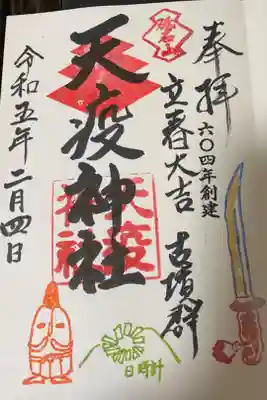 奉拝
六〇四年創建
立春大吉 古墳群
天疫神社
令和五年二月四日
日時計